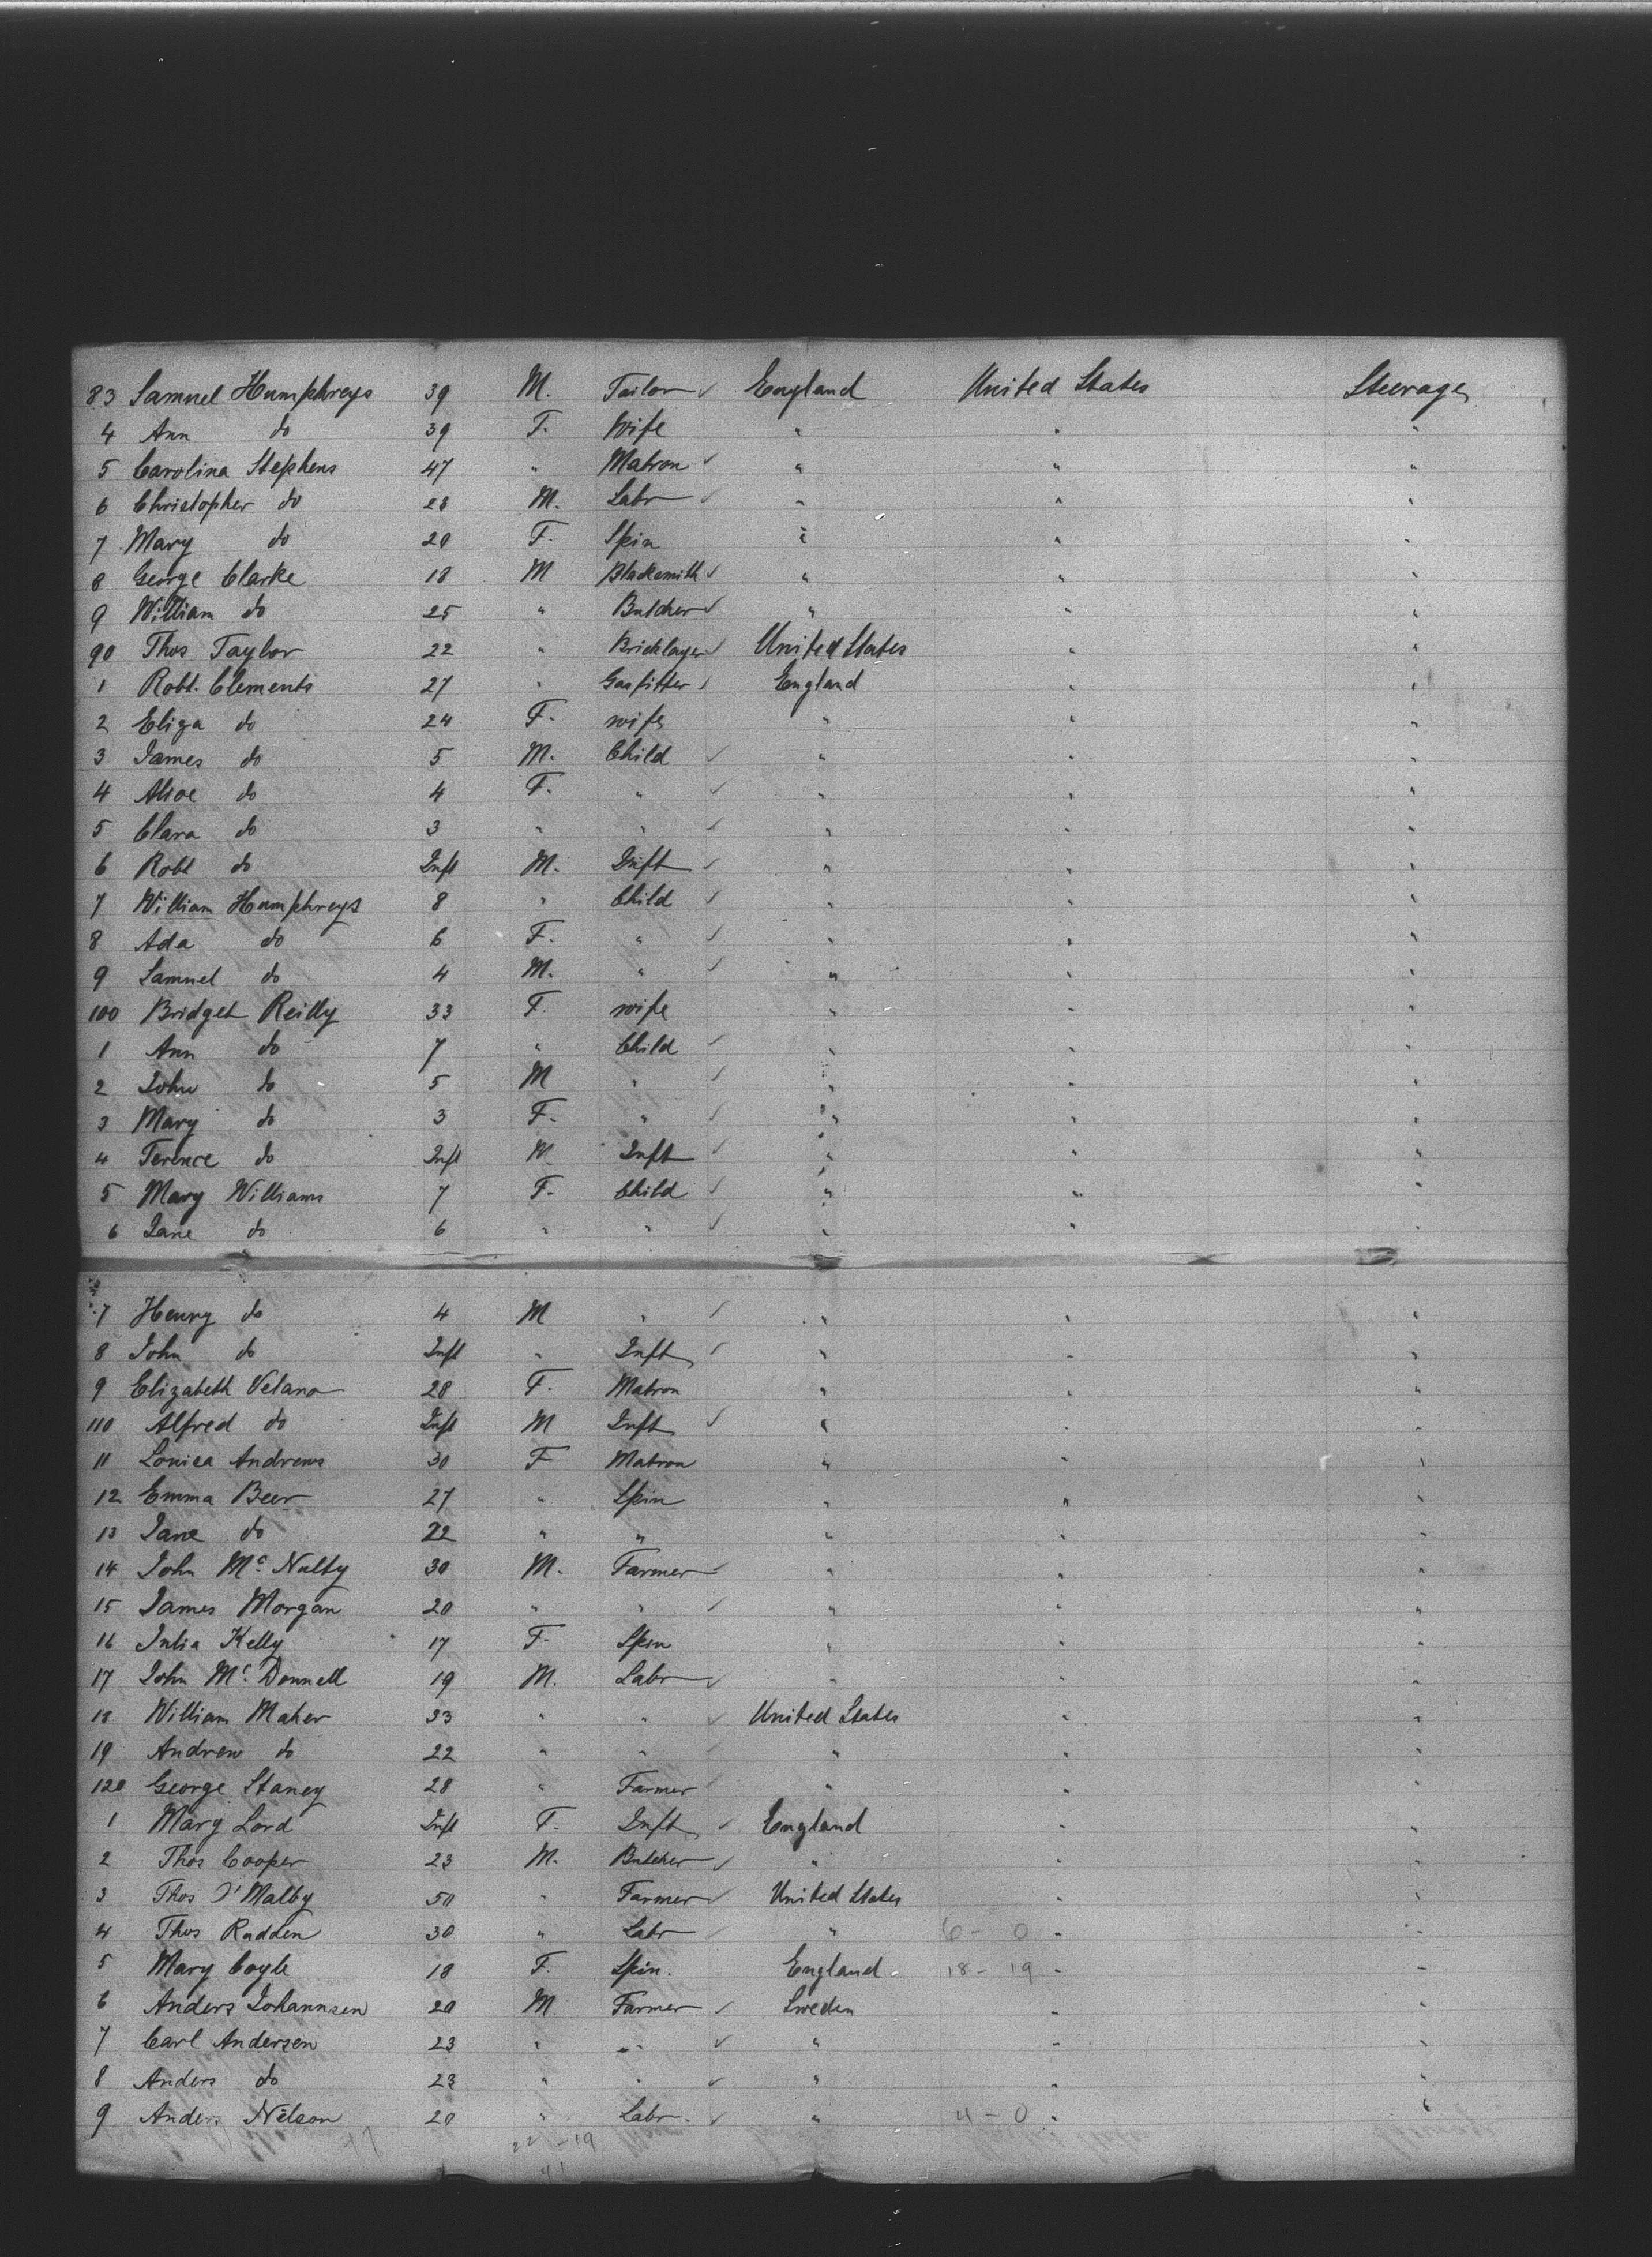 83 Samuel Humphreys 39 M. Tailor ✓ England United States Steerage
4 Ann do 39 F. Wife " " "
5 Carolina Stephens 47 " Matron ✓ " " "
6 Christopher do 28 M. Labr ✓ " " "
7 Mary do 20 F. Spin " " "
8 George Clarke 18 M Blacksmith ✓ " " "
9 William do 25 " Butcher ✓ " " "
90 Thos Taylor 22 " Bricklayer ✓ United States " "
1 Robt. Clements 27 " Gasfitter ✓ England " "
2 Eliza do 24 F. wife " " "
3 James do 5 M. Child ✓ " " "
4 Alice do 4 F. " ✓ " " "
5 Clara do 3 " " ✓ " " "
6 Robt do Inft M. Inft ✓ " " "
7 William Humphreys 8 " Child ✓ " " "
8 Ada do 6 F. " ✓ " " "
9 Samuel do 4 M. " ✓ " " "
100 Bridget Reilly 33 F. wife " " "
1 Ann do 7 " Child ✓ " " "
2 John do 5 M " ✓ " " "
3 Mary do 3 F. " ✓ " " "
4 Terence do Inft M Inft ✓ " " "
5 Mary Williams 7 F. Child ✓ " " "
6 Jane do 6 " " ✓ " " "
7 Henry do 4 M " ✓ " " "
8 John do Inft " Inft ✓ " " "
9 Elizabeth Velano 28 F. Matron " " "
110 Alfred do Inft M Inft ✓ " " "
11 Louisa Andrews 30 F Matron " " "
12 Emma Beer 27 " Spin " " "
13 Jane do 22 " " " " "
14 John Mc Nulty 30 M. Farmer ✓ " " "
15 James Morgan 20 " " ✓ " " "
16 Julia Kelly 17 F. Spin " " "
17 John Mc Donnell 19 M. Labr ✓ " " "
18 William Maher 33 " " ✓ United States " "
19 Andrew do 22 " " ✓ " " "
120 George Staney 28 " Farmer ✓ " " "
1 Mary Lord Inft F. Inft ✓ England " "
2 Thos Cooper 23 M. Butcher ✓ " " "
3 Thos O'Malby 50 " Farmer ✓ United States " "
4 Thos Rudden 30 " Labr ✓ " 6 - 0 " "
5 Mary Coyle 18 F. Spin. England 18 - 19 " "
6 Anders Johannsen 20 M Farmer ✓ Sweden " "
7 Carl Andersen 23 " " ✓ " " "
8 Anders do 23 " " ✓ " " "
9 Anders Nilson 20 " Labr. ✓ " 4 - 0 " "
22 - 19